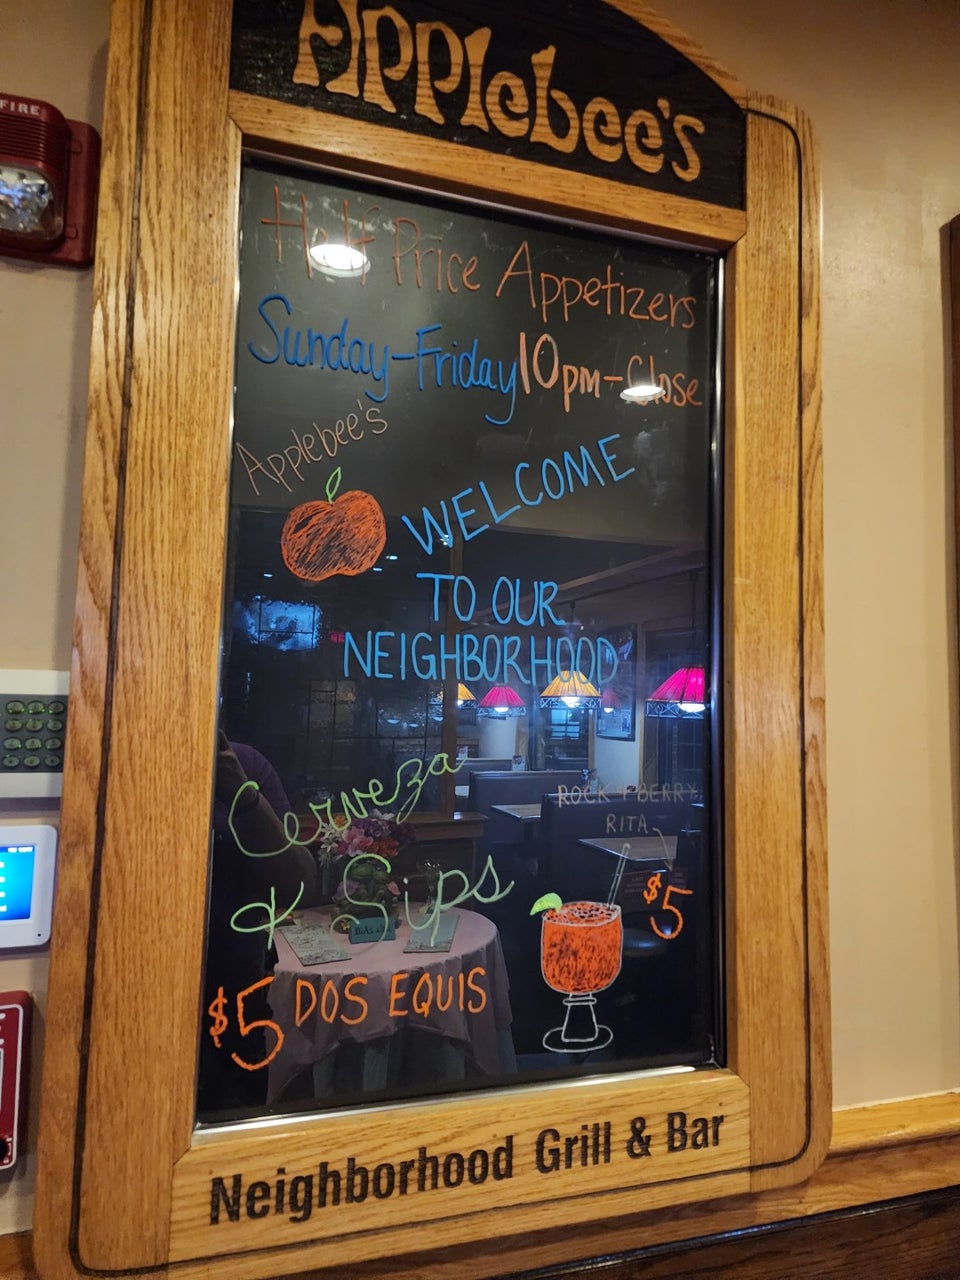 FIRE
Applebee's
Half Price Appetizers
Sunday-Friday 10pm-Close
Applebee's
WELCOME
TO OUR
NEIGHBORHOOD
Cerveza
& Sips
$5 DOS EQUIS
ROCK & BERRY
RITA
$5
Neighborhood Grill & Bar